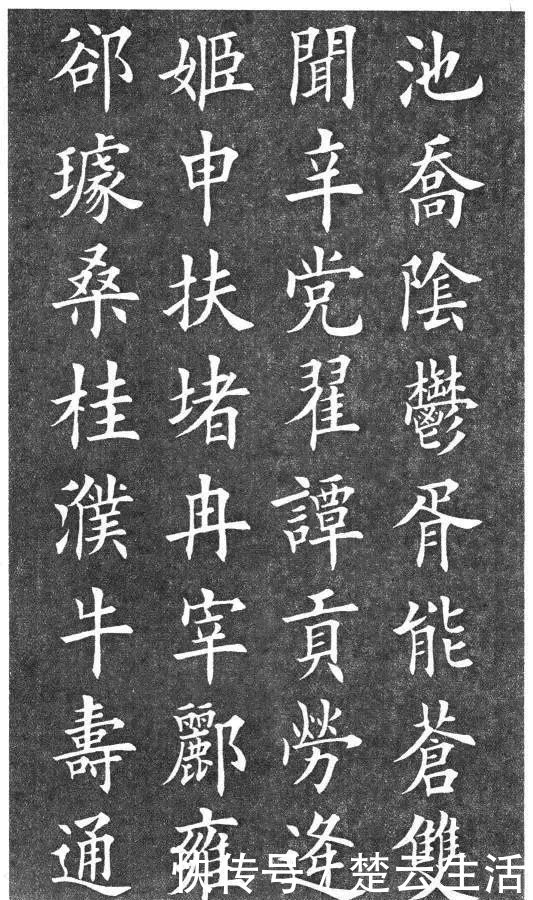 池喬陰鬱胥能蒼雙
聞辛党翟譚貢勞逄
姬申扶堵冉宰酈雍
郤璩桑桂濮牛壽通
快传号 / 楚云生活